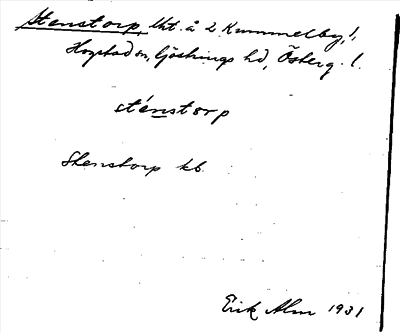 Stenstorp, lht. å 2 Kummelby, l.,
Hogstad sn, Göstrings hd, Österg. l.
sténstorp
Stenstorp kb.
Erik Alm 1931